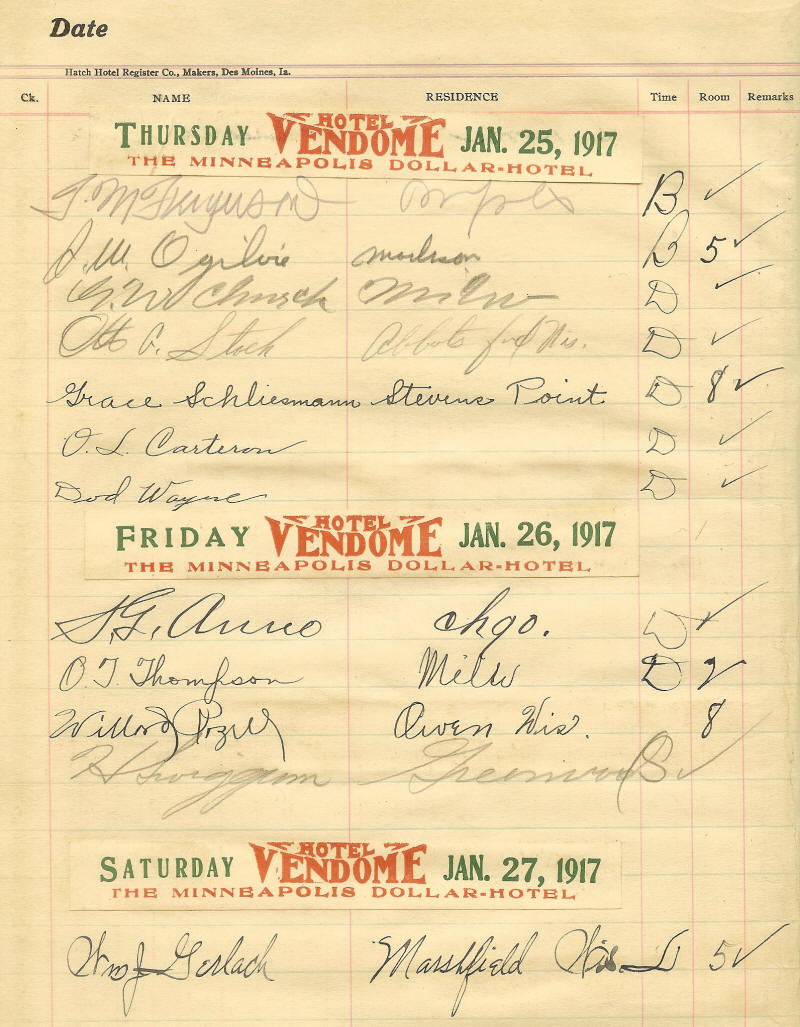 Date
Hatch Hotel Register Co., Makers, Des Moines, Ia.
Ck. NAME RESIDENCE Time Room Remarks
THURSDAY HOTEL VENDOME JAN. 25, 1917
THE MINNEAPOLIS DOLLAR-HOTEL
J. M Ferguson Mpls B ✓
J. W. Ogilvie Madison B 5 ✓
G. W. Church Milw D ✓
Otto A. Stock Abbotsford Wis. D ✓
Grace Schliesmann Stevens Point D 8 ✓
O. L. Carteron D ✓
Dod Wayne D ✓
FRIDAY HOTEL VENDOME JAN. 26, 1917
THE MINNEAPOLIS DOLLAR-HOTEL
S. G. Anno chgo. D ✓
O. T. Thompson Milw D 2
Willard Owen Wis. 8
Greenwood B ✓
SATURDAY HOTEL VENDOME JAN. 27, 1917
THE MINNEAPOLIS DOLLAR-HOTEL
Wm J Gerlach Marshfield Wis. D 5 ✓